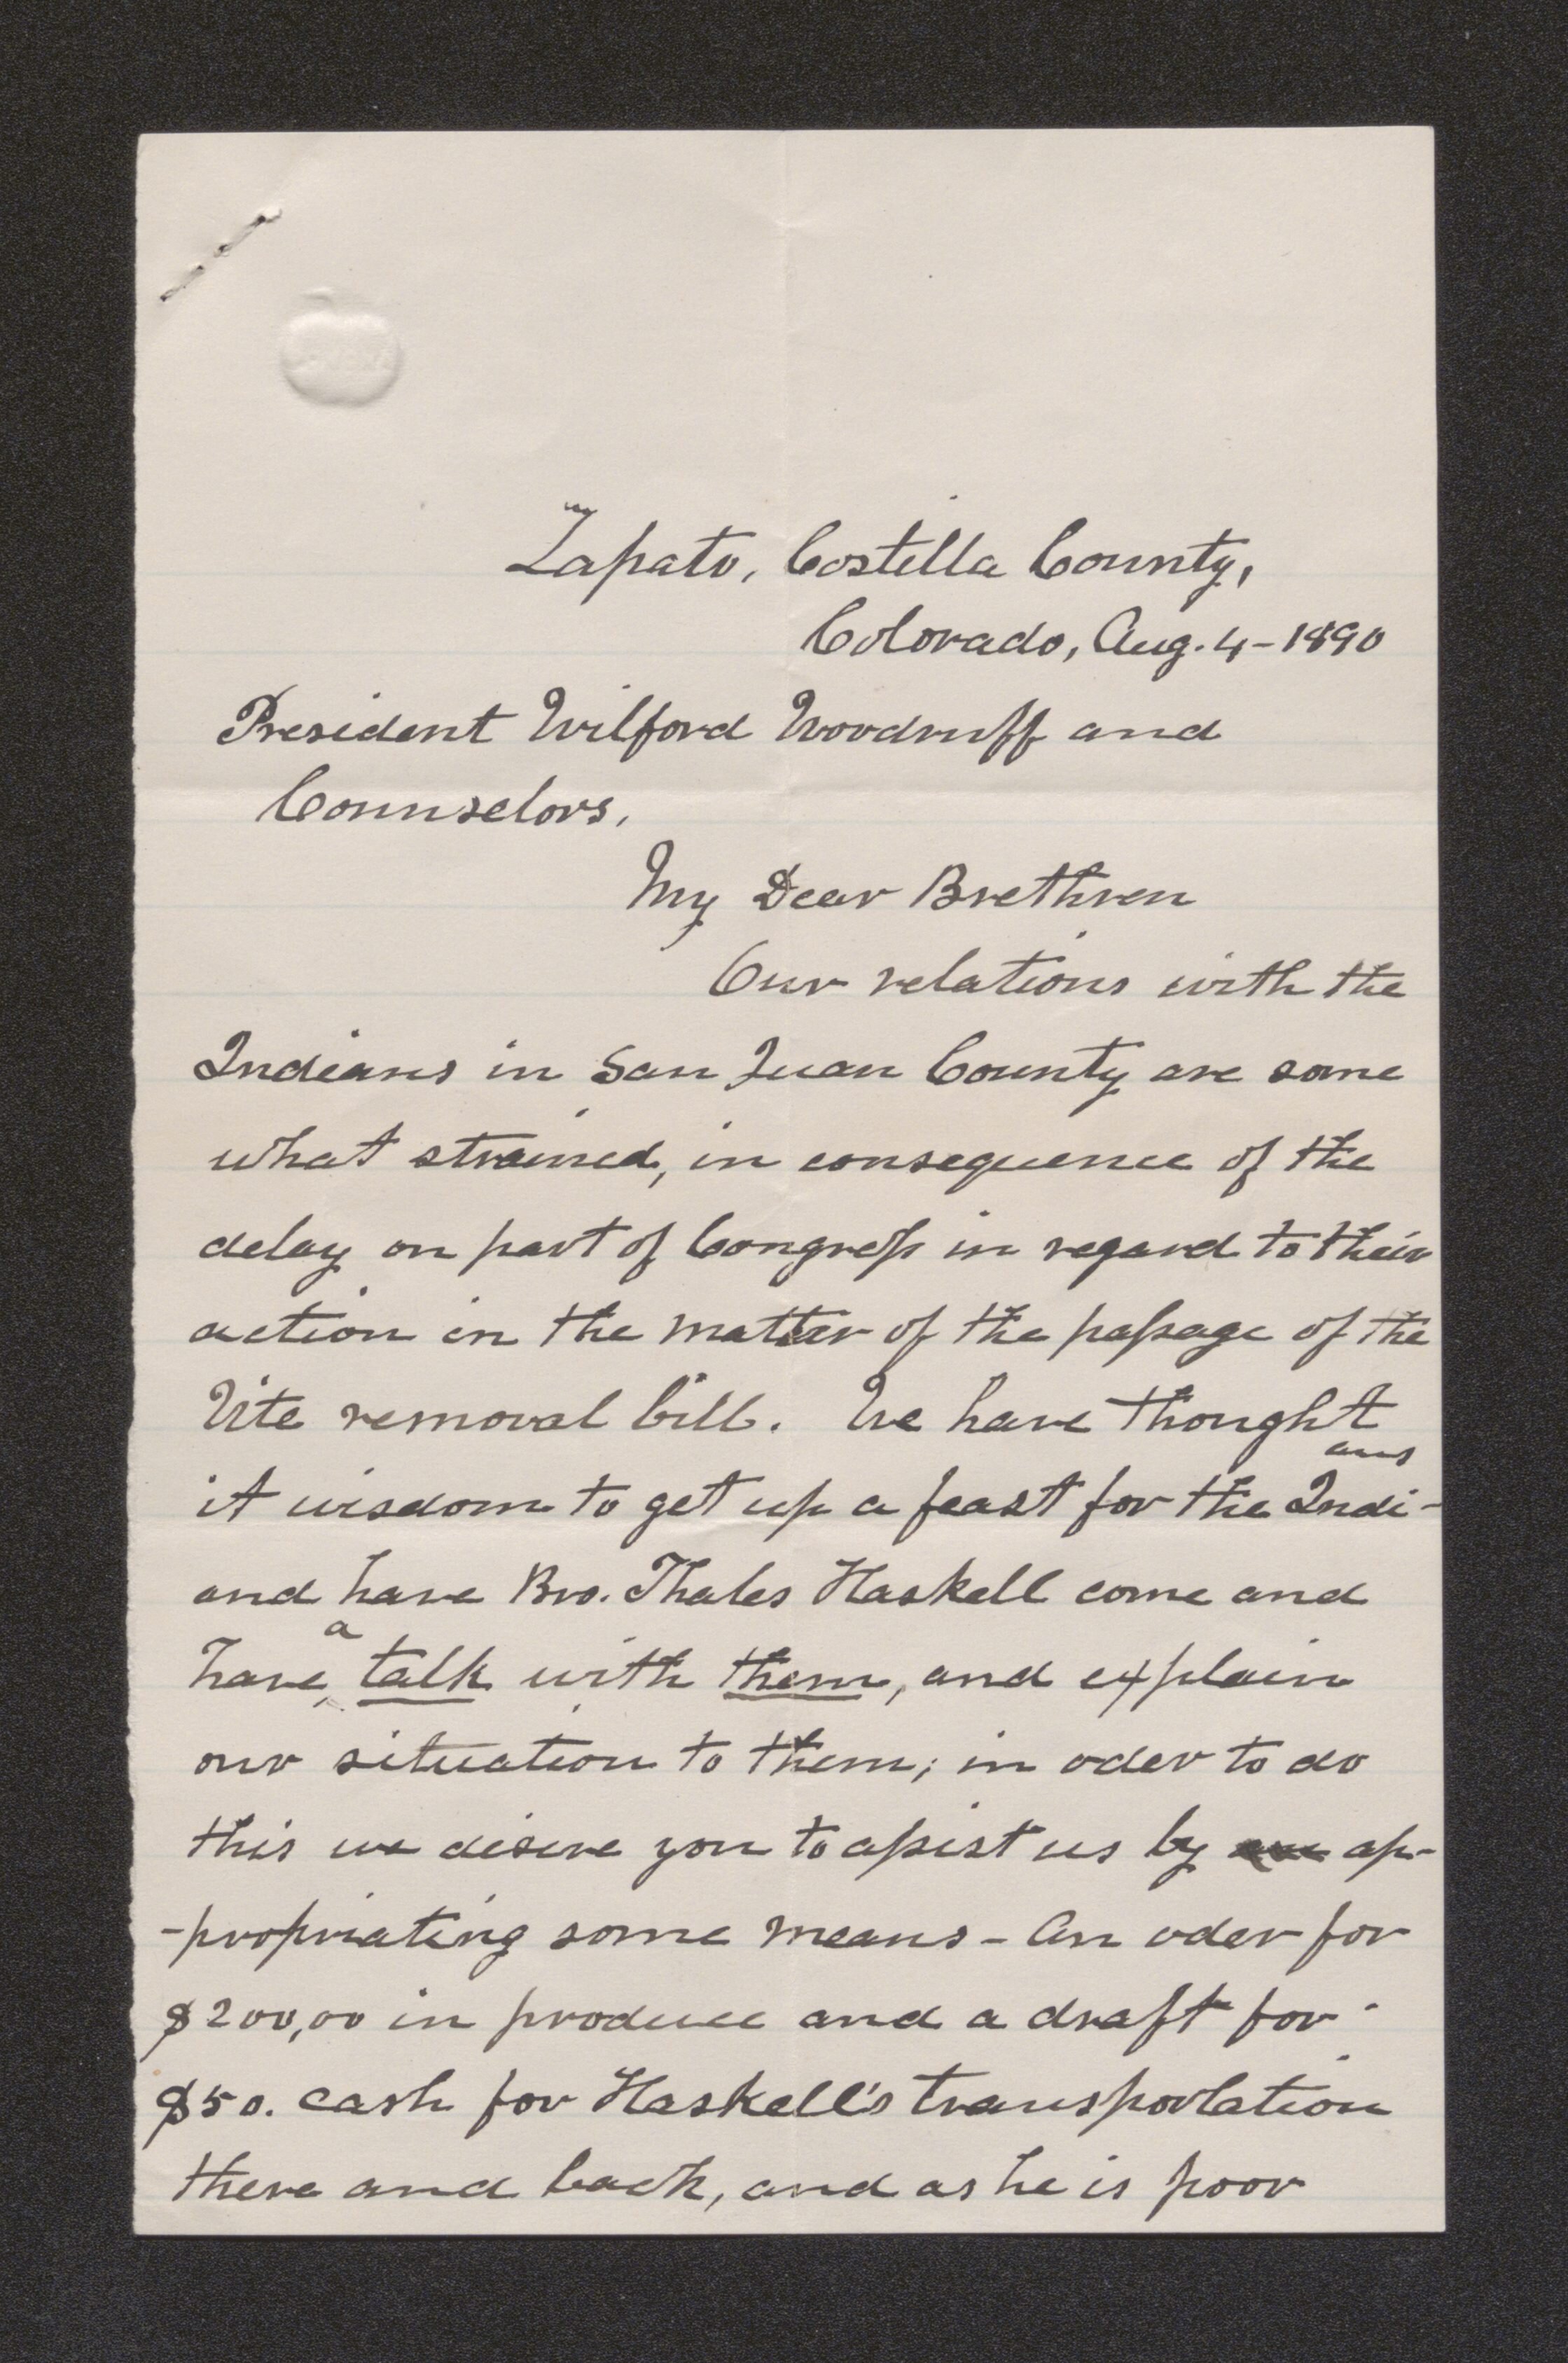 Zapato, Costilla County,
Colorado, Aug. 4-1890
President Wilford Woodruff and
Counselors,
My Dear Brethren
Our relations with the
Indians in San Juan County are some
what strained, in consequence of the
delay on part of Congress in regard to their
action in the matter of the passage of the
Ute removal bill. We have thought
it wisdom to get up a feast for the Indi-ans
and have Bro. Thales Haskell come and
have a talk with them, and explain
our situation to them; in oder to do
this we desire you to assist us by ap-
-propriating some means - An oder for
$200,00 in produce and a draft for
$50. cash for Haskell's transportation
there and back, and as he is poor